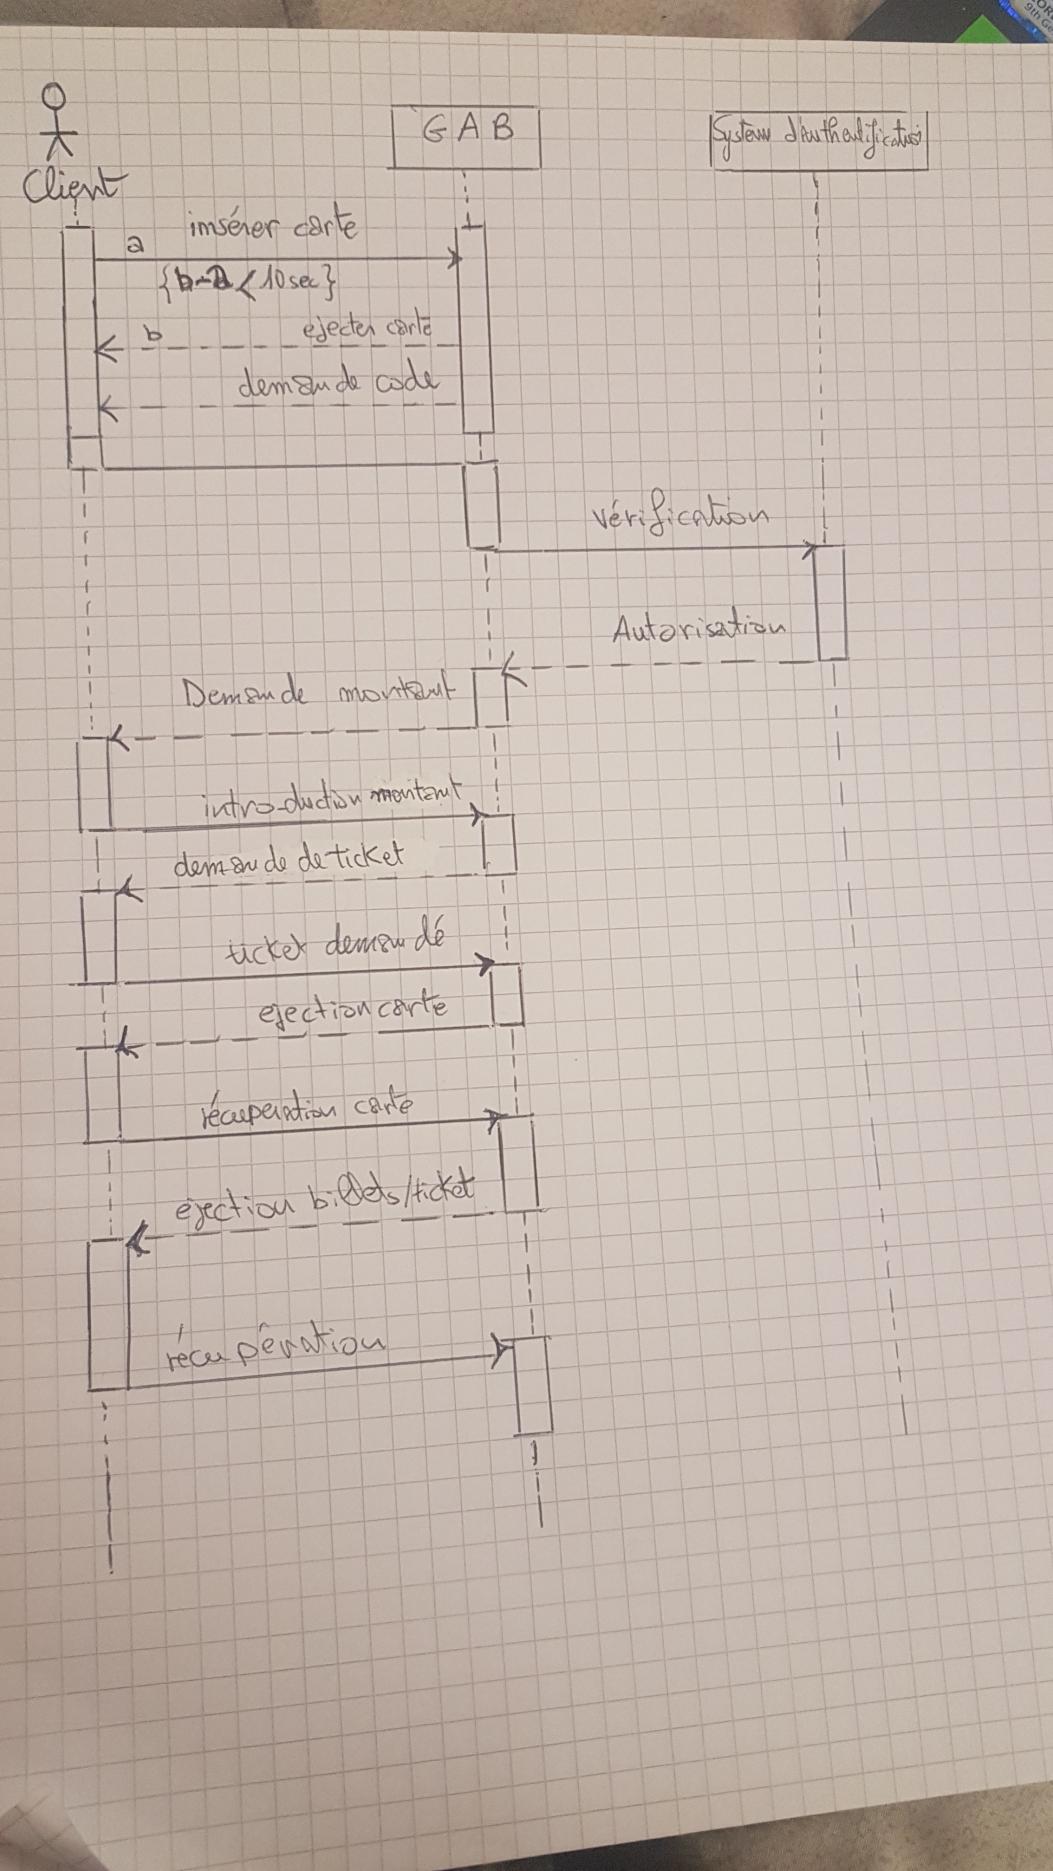 GAB
Système d'authentification
Client
insérer carte
a
{b-a < 10sec}
b
ejecter carte
demande code
vérification
Autorisation
Demande montant
introduction montant
demande de ticket
ticket demandé
ejection carte
récuperation carte
ejection billets/ticket
récupération
9th Ge